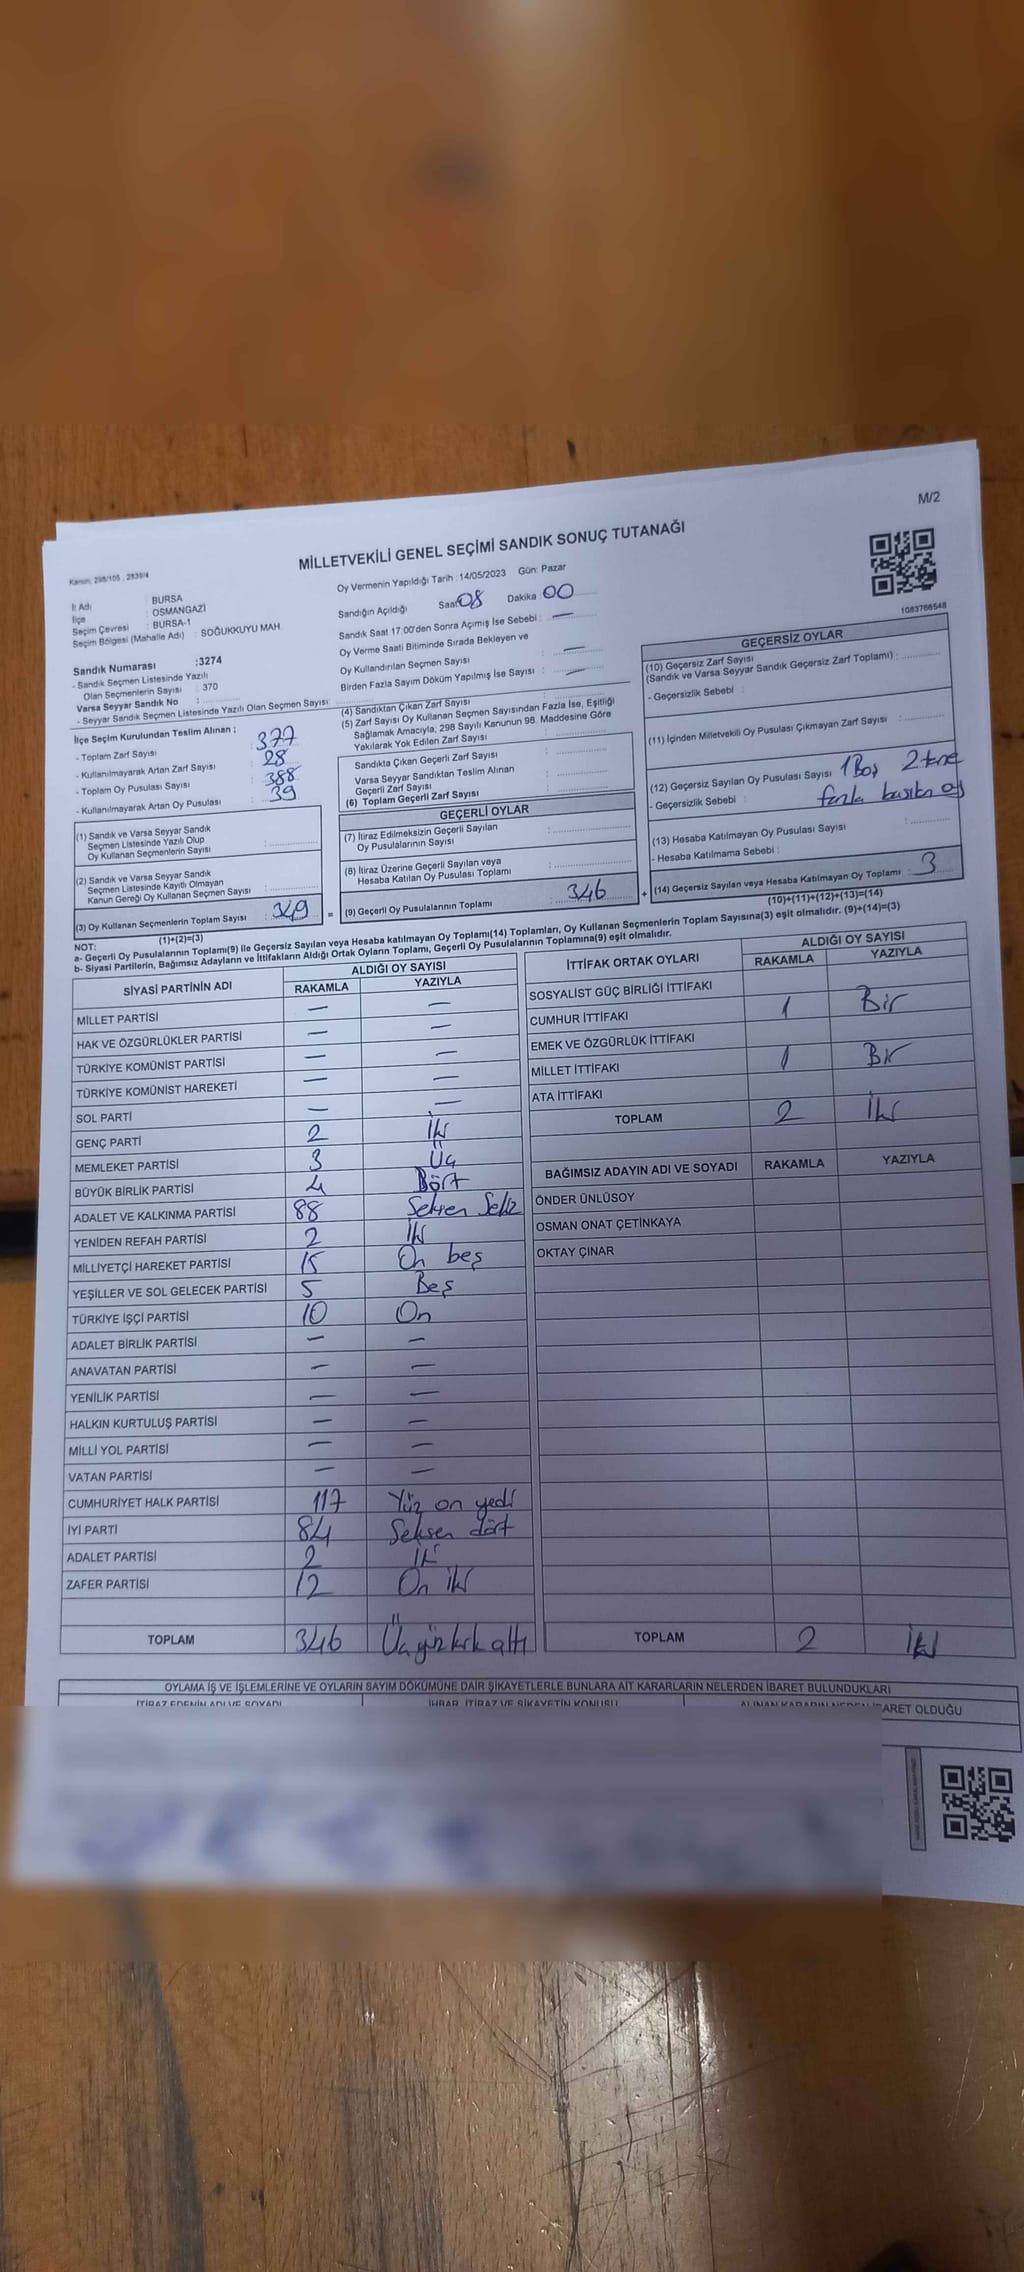 M/2
MİLLETVEKİLİ GENEL SEÇİMİ SANDIK SONUÇ TUTANAĞI
Kanun: 298/105 , 2839/4
1083766548
İl Adı : BURSA
İlçe : OSMANGAZİ
Seçim Çevresi : BURSA-1
Seçim Bölgesi (Mahalle Adı) : SOĞUKKUYU MAH
Sandık Numarası :3274
- Sandık Seçmen Listesinde Yazılı
Olan Seçmenlerin Sayısı : 370
Varsa Seyyar Sandık No :
- Seyyar Sandık Seçmen Listesinde Yazılı Olan Seçmen Sayısı:
Oy Vermenin Yapıldığı Tarih :14/05/2023 Gün: Pazar
Sandığın Açıldığı Saat 08 Dakika 00
Sandık Saat 17:00'den Sonra Açımış İse Sebebi : —
Oy Verme Saati Bitiminde Sırada Bekleyen ve
Oy Kullandırılan Seçmen Sayısı : —
Birden Fazla Sayım Döküm Yapılmış İse Sayısı : —
İlçe Seçim Kurulundan Teslim Alınan ;
- Toplam Zarf Sayısı : 377
- Kullanılmayarak Artan Zarf Sayısı : 28
- Toplam Oy Pusulası Sayısı : 388
- Kullanılmayarak Artan Oy Pusulası : 39
(1) Sandık ve Varsa Seyyar Sandık
Seçmen Listesinde Yazılı Olup
Oy Kullanan Seçmenlerin Sayısı :
(2) Sandık ve Varsa Seyyar Sandık
Seçmen Listesinde Kayıtlı Olmayan
Kanun Gereği Oy Kullanan Seçmen Sayısı :
(3) Oy Kullanan Seçmenlerin Toplam Sayısı : 349
(1)+(2)=(3)
(4) Sandıktan Çıkan Zarf Sayısı :
(5) Zarf Sayısı Oy Kullanan Seçmen Sayısından Fazla İse, Eşitliği
Sağlamak Amacıyla; 298 Sayılı Kanunun 98. Maddesine Göre
Yakılarak Yok Edilen Zarf Sayısı :
Sandıkta Çıkan Geçerli Zarf Sayısı :
Varsa Seyyar Sandıktan Teslim Alınan
Geçerli Zarf Sayısı :
(6) Toplam Geçerli Zarf Sayısı :
GEÇERLİ OYLAR
(7) İtiraz Edilmeksizin Geçerli Sayılan
Oy Pusulalarının Sayısı :
(8) İtiraz Üzerine Geçerli Sayılan veya
Hesaba Katılan Oy Pusulası Toplamı :
= (9) Geçerli Oy Pusulalarının Toplamı : 346
GEÇERSİZ OYLAR
(10) Geçersiz Zarf Sayısı
(Sandık ve Varsa Seyyar Sandık Geçersiz Zarf Toplamı) :
- Geçersizlik Sebebi :
(11) İçinden Milletvekili Oy Pusulası Çıkmayan Zarf Sayısı :
(12) Geçersiz Sayılan Oy Pusulası Sayısı : 1 Boş 2 tane
- Geçersizlik Sebebi : fazla basılan oy
(13) Hesaba Katılmayan Oy Pusulası Sayısı :
- Hesaba Katılmama Sebebi :
+ (14) Geçersiz Sayılan veya Hesaba Katılmayan Oy Toplamı : 3
(10)+(11)+(12)+(13)=(14)
NOT:
a- Geçerli Oy Pusulalarının Toplamı(9) ile Geçersiz Sayılan veya Hesaba katılmayan Oy Toplamı(14) Toplamları, Oy Kullanan Seçmenlerin Toplam Sayısına(3) eşit olmalıdır. (9)+(14)=(3)
b- Siyasi Partilerin, Bağımsız Adayların ve İttifakların Aldığı Ortak Oyların Toplamı, Geçerli Oy Pusulalarının Toplamına(9) eşit olmalıdır.
SİYASİ PARTİNİN ADI ALDIĞI OY SAYISI
RAKAMLA YAZIYLA
MİLLET PARTİSİ — —
HAK VE ÖZGÜRLÜKLER PARTİSİ — —
TÜRKİYE KOMÜNİST PARTİSİ — —
TÜRKİYE KOMÜNİST HAREKETİ — —
SOL PARTİ — —
GENÇ PARTİ 2 İki
MEMLEKET PARTİSİ 3 Üç
BÜYÜK BİRLİK PARTİSİ 4 Dört
ADALET VE KALKINMA PARTİSİ 88 Seksen Sekiz
YENİDEN REFAH PARTİSİ 2 İki
MİLLİYETÇİ HAREKET PARTİSİ 15 On beş
YEŞİLLER VE SOL GELECEK PARTİSİ 5 Beş
TÜRKİYE İŞÇİ PARTİSİ 10 On
ADALET BİRLİK PARTİSİ — —
ANAVATAN PARTİSİ — —
YENİLİK PARTİSİ — —
HALKIN KURTULUŞ PARTİSİ — —
MİLLİ YOL PARTİSİ — —
VATAN PARTİSİ — —
CUMHURİYET HALK PARTİSİ 117 Yüz on yedi
İYİ PARTİ 84 Seksen dört
ADALET PARTİSİ 2 İki
ZAFER PARTİSİ 12 On iki
TOPLAM 346 Üç yüz kırk altı
İTTİFAK ORTAK OYLARI ALDIĞI OY SAYISI
RAKAMLA YAZIYLA
SOSYALİST GÜÇ BİRLİĞİ İTTİFAKI
CUMHUR İTTİFAKI 1 Bir
EMEK VE ÖZGÜRLÜK İTTİFAKI
MİLLET İTTİFAKI 1 Bir
ATA İTTİFAKI
TOPLAM 2 İki
BAĞIMSIZ ADAYIN ADI VE SOYADI RAKAMLA YAZIYLA
ÖNDER ÜNLÜSOY
OSMAN ONAT ÇETİNKAYA
OKTAY ÇINAR
TOPLAM 2 İki
OYLAMA İŞ VE İŞLEMLERİNE VE OYLARIN SAYIM DÖKÜMÜNE DAİR ŞİKAYETLERLE BUNLARA AİT KARARLARIN NELERDEN İBARET BULUNDUKLARI
İTİRAZ EDENİN ADI VE SOYADI İHBAR, İTİRAZ VE ŞİKAYETİN KONUSU ALINAN KARARIN NEDEN İBARET OLDUĞU